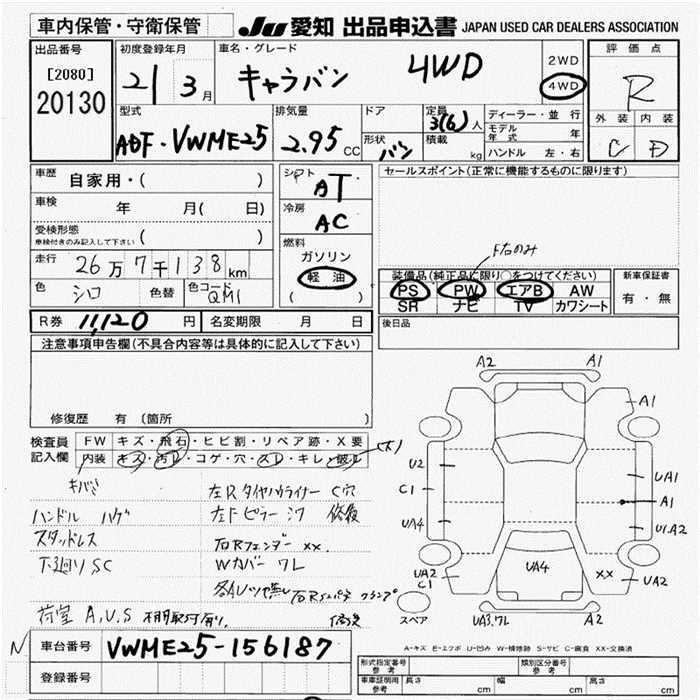 車内保管・守衛保管 JU 愛知 出品申込書 JAPAN USED CAR DEALERS ASSOCIATION
出品番号
[2080]
20130
初度登録年月
21 3月
車名・グレード
キャラバン 4WD
2WD
4WD
評価点
R
外装 内装
C D
型式
ADF・VWME25
排気量
2.95 CC
ドア
形状
バン
定員
3(6)人
積載
kg
ディーラー・並行
モデル年式 年
ハンドル 左・右
車歴 自家用・( )
車検 年 月( 日)
受検形態
車検付きのみ記入して下さい ( )
走行 26万7千138km
色 シロ 色替 色コード QM1
シフト AT
冷房 AC
燃料
ガソリン
軽油
( )
セールスポイント(正常に機能するものに限ります)
F右のみ
装備品(純正品に限り○をつけてください)
PS PW エアB AW
SR ナビ TV カワシート
新車保証書
有・無
R券 11,120円 名変期限 月 日
後日品
注意事項申告欄(不具合内容等は具体的に記入して下さい)
修復歴 有(箇所
検査員記入欄
FW キズ・飛石・ヒビ割・リペア跡・X要
内装 キズ・汚レ・コゲ・穴・スレ・キレ・破レ (大)
キバミ
ハンドル ハゲ
スタッドレス
下廻りSC
荷室 A,U,S 棚取付有り
左Rタイヤハウライナー C穴
左Fピラー シワ 修復
右Rフェンダー XX.
Wカバー ワレ
A2 A1
A1
U2
C1
UA4
UA1
A1
U1.A2
UA2
C1
UA4
XX
UA2
UA3.ワレ A2
スペア
A-キズ E-エクボ U-凹み W-補修跡 S-サビ C-腐食 XX-交換済
N 車台番号 VWME25-156187
登録番号
形式指定番号
参考
類別区分番号
参考
車庫証明用
参考
長さ cm 幅 cm 高さ cm